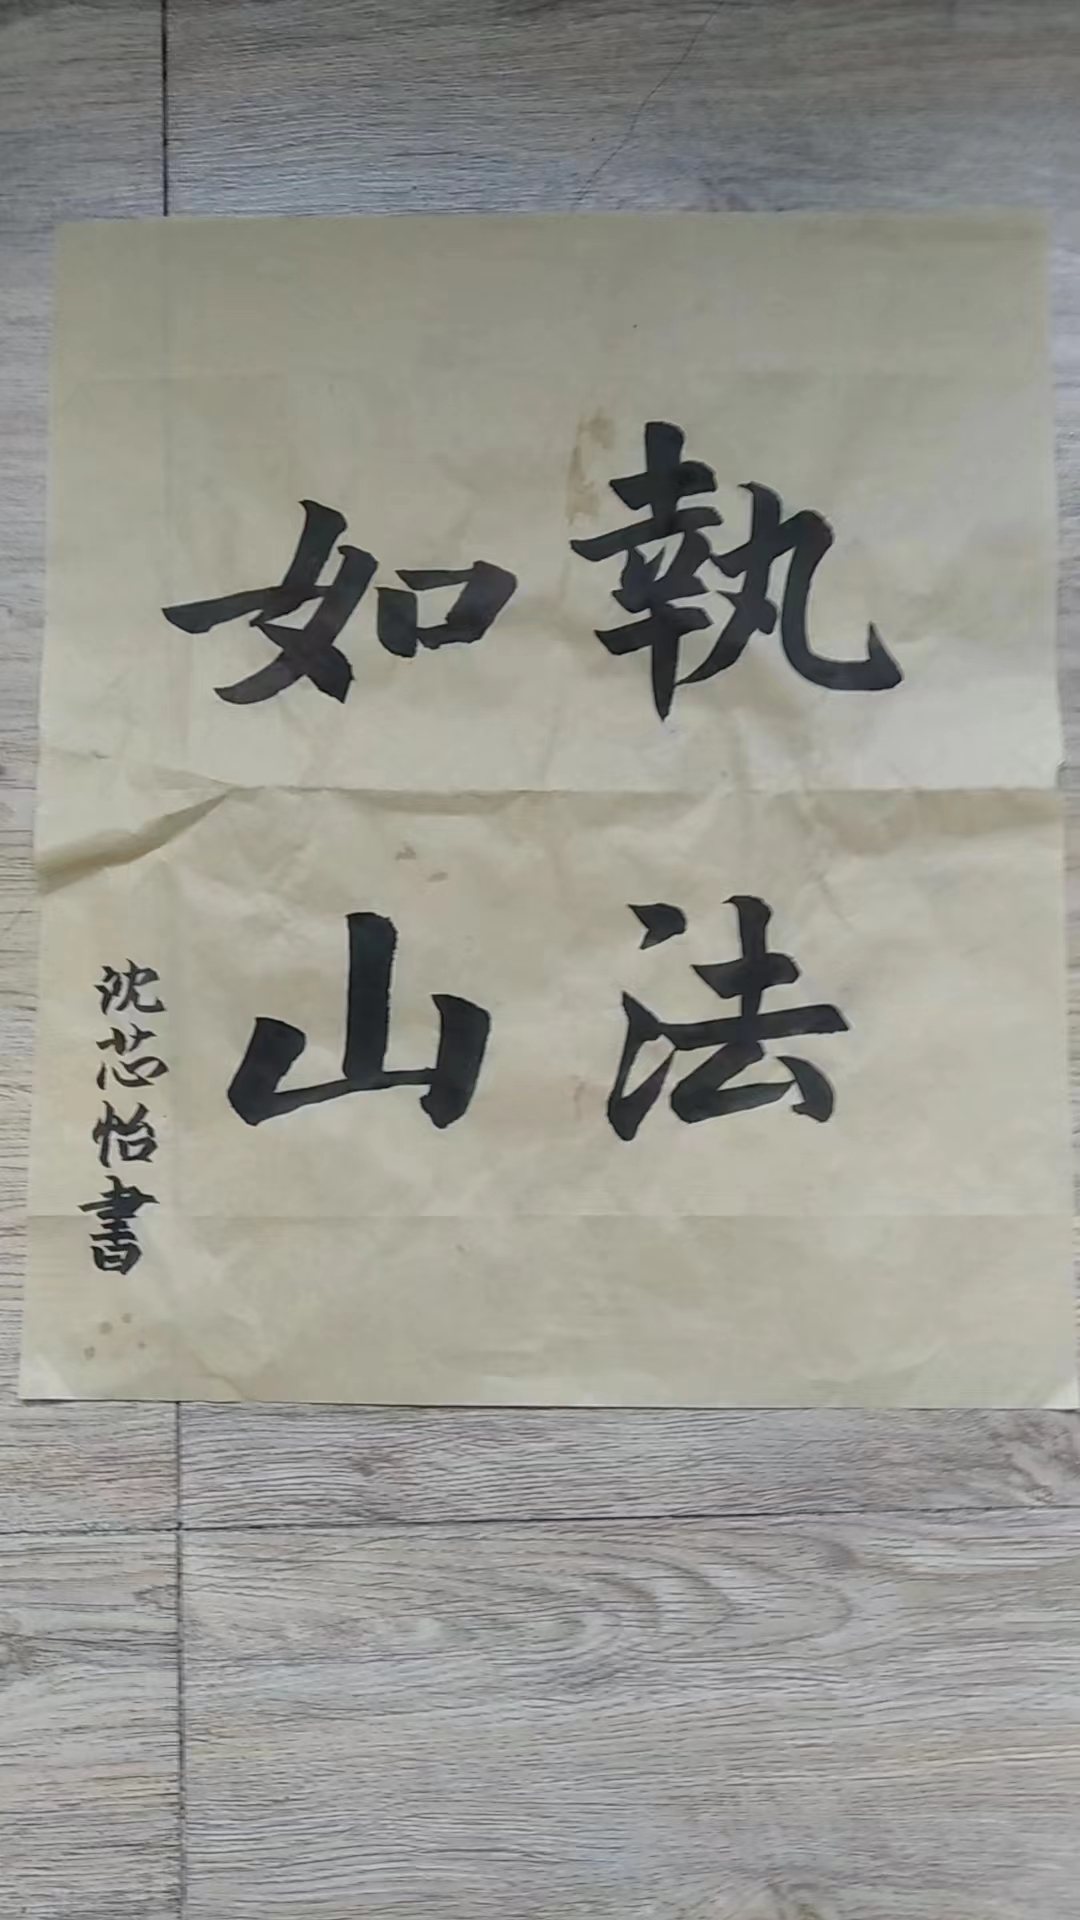 執法
如山
沈芯怡書